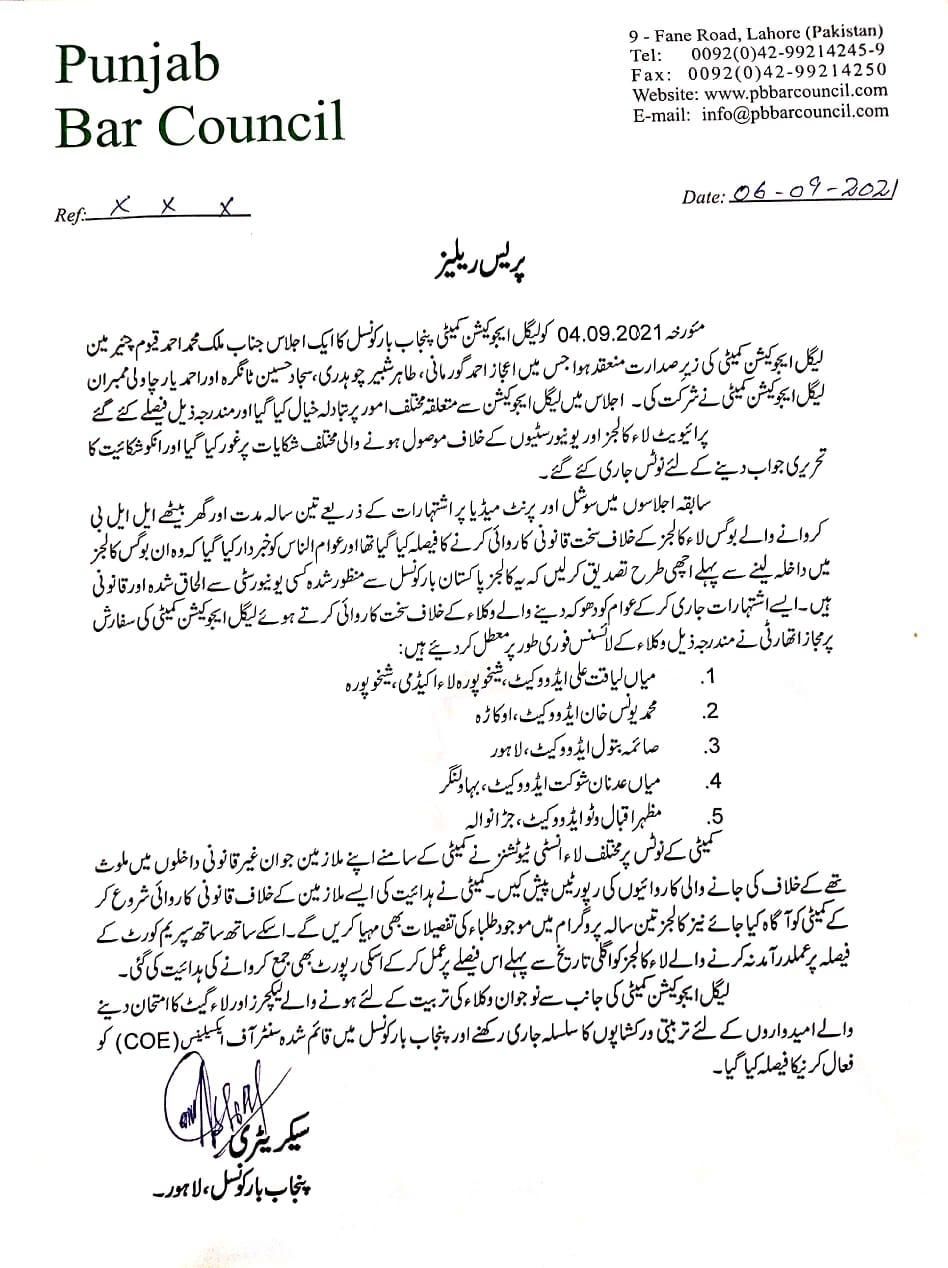 Punjab
Bar Council
9 - Fane Road, Lahore (Pakistan)
Tel: 0092(0)42-99214245-9
Fax: 0092(0)42-99214250
Website: www.pbbarcouncil.com
E-mail: info@pbbarcouncil.com
Ref: x x x
Date: 06-09-2021
پریس ریلیز
مئورخہ 04.09.2021 کو لیگل ایجوکیشن کمیٹی پنجاب بار کونسل کا ایک اجلاس جناب ملک محمد احمد قیوم چئیر مین
لیگل ایجوکیشن کمیٹی کی زیر صدارت منعقد ہوا جس میں اعجاز احمد گورمانی، طاہر شبیر چوہدری، سجاد حسین ٹانگرہ اور احمد یار چاولی ممبران
لیگل ایجوکیشن کمیٹی نے شرکت کی۔ اجلاس میں لیگل ایجوکیشن سے متعلقہ مختلف امور پر تبادلہ خیال کیا گیا اور مندرجہ ذیل فیصلے کئے گئے
پرائیویٹ لاء کالجز اور یونیورسٹیوں کے خلاف موصول ہونے والی مختلف شکایات پر غور کیا گیا اور انکو شکائیت کا
تحریری جواب دینے کے لئے نوٹس جاری کئے گئے۔
سابقہ اجلاسوں میں سوشل اور پرنٹ میڈیا پر اشتہارات کے ذریعے تین سالہ مدت اور گھر بیٹھے ایل ایل بی
کروانے والے بوگس لاء کالجز کے خلاف سخت قانونی کاروائی کرنے کا فیصلہ کیا گیا تھا اور عوام الناس کو خبردار کیا گیا کہ وہ ان بوگس کالجز
میں داخلہ لینے سے پہلے اچھی طرح تصدیق کر لیں کہ یہ کالجز پاکستان بار کونسل سے منظور شدہ کسی یونیورسٹی سے الحاق شدہ اور قانونی
ہیں۔ ایسے اشتہارات جاری کر کے عوام کو دھوکہ دینے والے وکلاء کے خلاف سخت کاروائی کرتے ہوئے لیگل ایجوکیشن کمیٹی کی سفارش
پر مجاز اتھارٹی نے مندرجہ ذیل وکلاء کے لائسنس فوری طور پر معطل کر دیئے ہیں:
1. میاں لیاقت علی ایڈووکیٹ، شیخوپورہ لاء اکیڈمی، شیخوپورہ
2. محمد یونس خان ایڈووکیٹ، اوکاڑہ
3. صائمہ بتول ایڈووکیٹ، لاہور
4. میاں عدنان شوکت ایڈووکیٹ، بہاولنگر
5. مظہر اقبال وٹو ایڈووکیٹ، جڑانوالہ
کمیٹی کے نوٹس پر مختلف لاء انسٹی ٹیوشنز نے کمیٹی کے سامنے اپنے ملازمین جو ان غیر قانونی داخلوں میں ملوث
تھے کے خلاف کی جانے والی کاروائیوں کی رپورٹیں پیش کیں۔ کمیٹی نے ہدائیت کی ایسے ملازمین کے خلاف قانونی کاروائی شروع کر
کے کمیٹی کو آگاہ کیا جائے نیز کالجز تین سالہ پروگرام میں موجود طلباء کی تفصیلات بھی مہیا کریں گے۔ اسکے ساتھ ساتھ سپریم کورٹ کے
فیصلہ پر عملدرآمد نہ کرنے والے لاء کالجز کو اگلی تاریخ سے پہلے اس فیصلے پر عمل کر کے اسکی رپورٹ بھی جمع کروانے کی ہدائیت کی گئی۔
لیگل ایجوکیشن کمیٹی کی جانب سے نوجوان وکلاء کی تربیت کے لئے ہونے والے لیکچرز اور لاء گیٹ کا امتحان دینے
والے امیدواروں کے لئے تربیتی ورکشاپوں کا سلسلہ جاری رکھنے اور پنجاب بار کونسل میں قائم شدہ سنٹر آف ایکسیلینس (COE) کو
فعال کرنیکا فیصلہ کیا گیا۔
سیکریٹری
پنجاب بار کونسل، لاہور۔